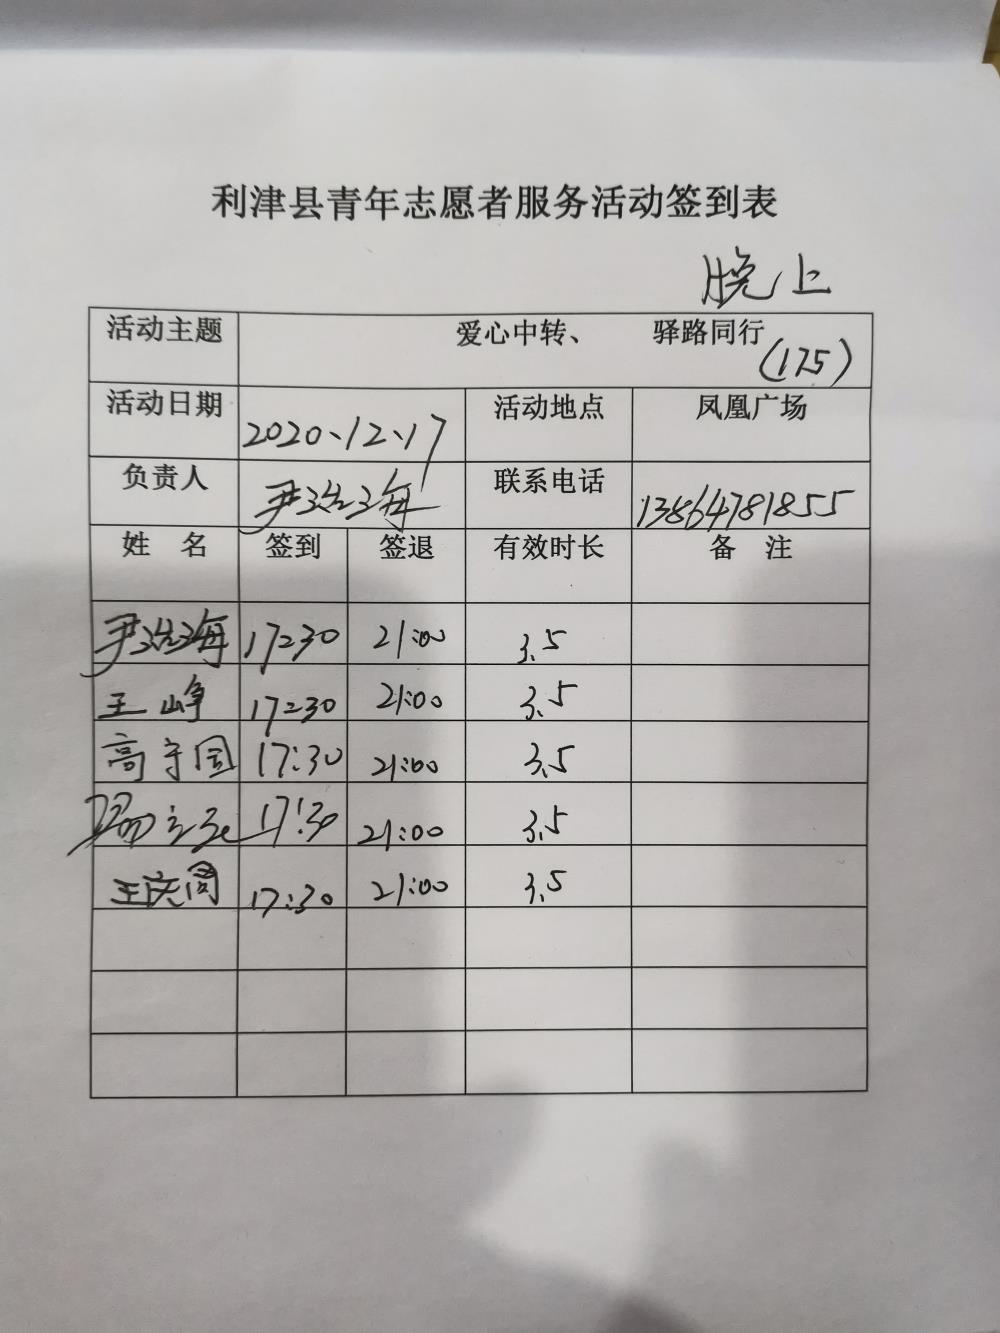 利津县青年志愿者服务活动签到表
晚上
活动主题 爱心中转、 驿路同行
(175)
活动日期 2020、12、17 活动地点 凤凰广场
负责人 尹浩海 联系电话 13864781855
姓 名 签到 签退 有效时长 备 注
尹浩海 17:30 21:00 3.5
王峥 17:30 21:00 3.5
高守国 17:30 21:00 3.5
17:30 21:00 3.5
王庆周 17:30 21:00 3.5